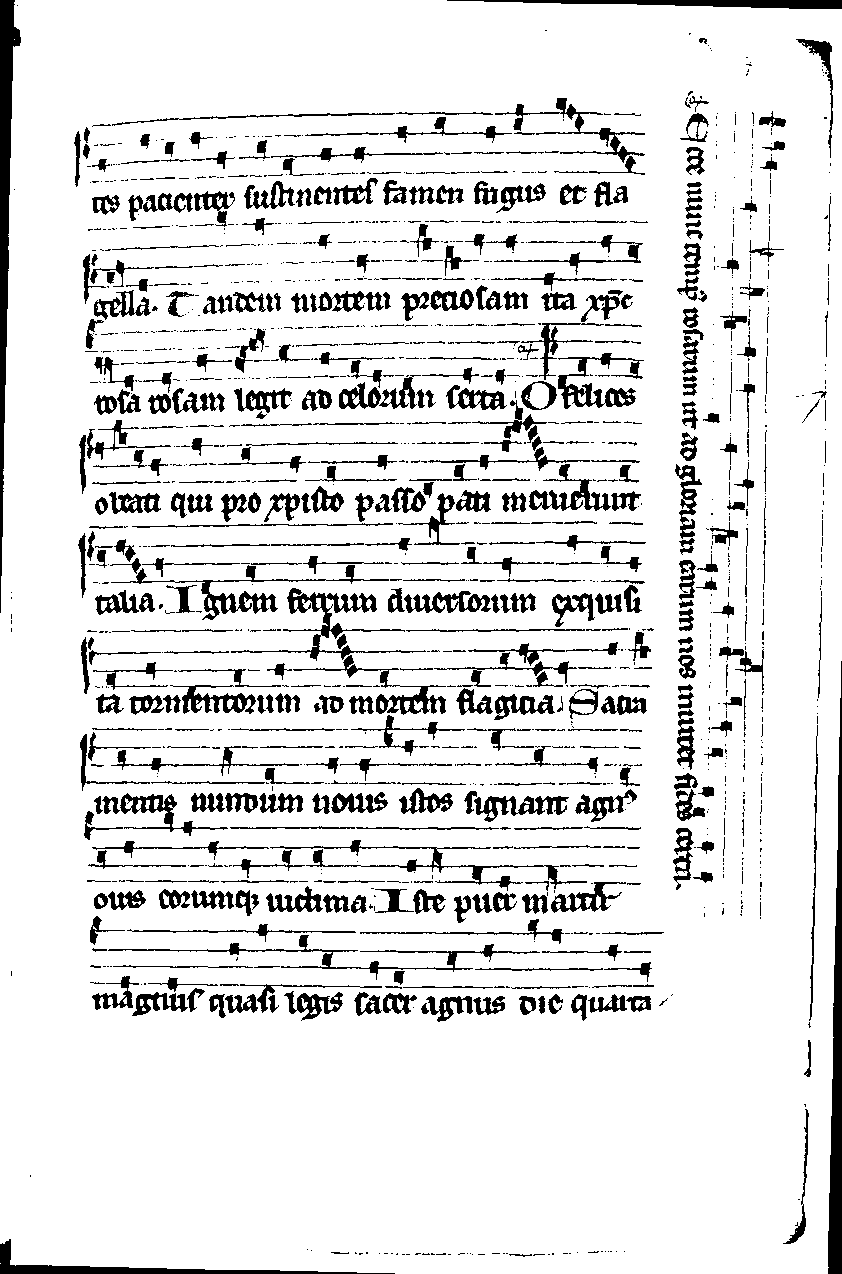 tes pacienter sustinentes famen frigus et fla
gella. Tandem mortem preciosam ita xpc
rosa rosam legit ad celorum serta. O felices
o beati qui pro xpisto passo pati meruerunt
talia. Ignem ferrum diversorum exquisi
ta tormentorum ad mortem flagicia. Sacra
mentis mirum novis istos signant agnus
ovis eorumque victima. Iste puer martir
magnus quasi legis sacer agnus die quarta
Ecce nunc rosarum ut ad gloriam earum nos invitet